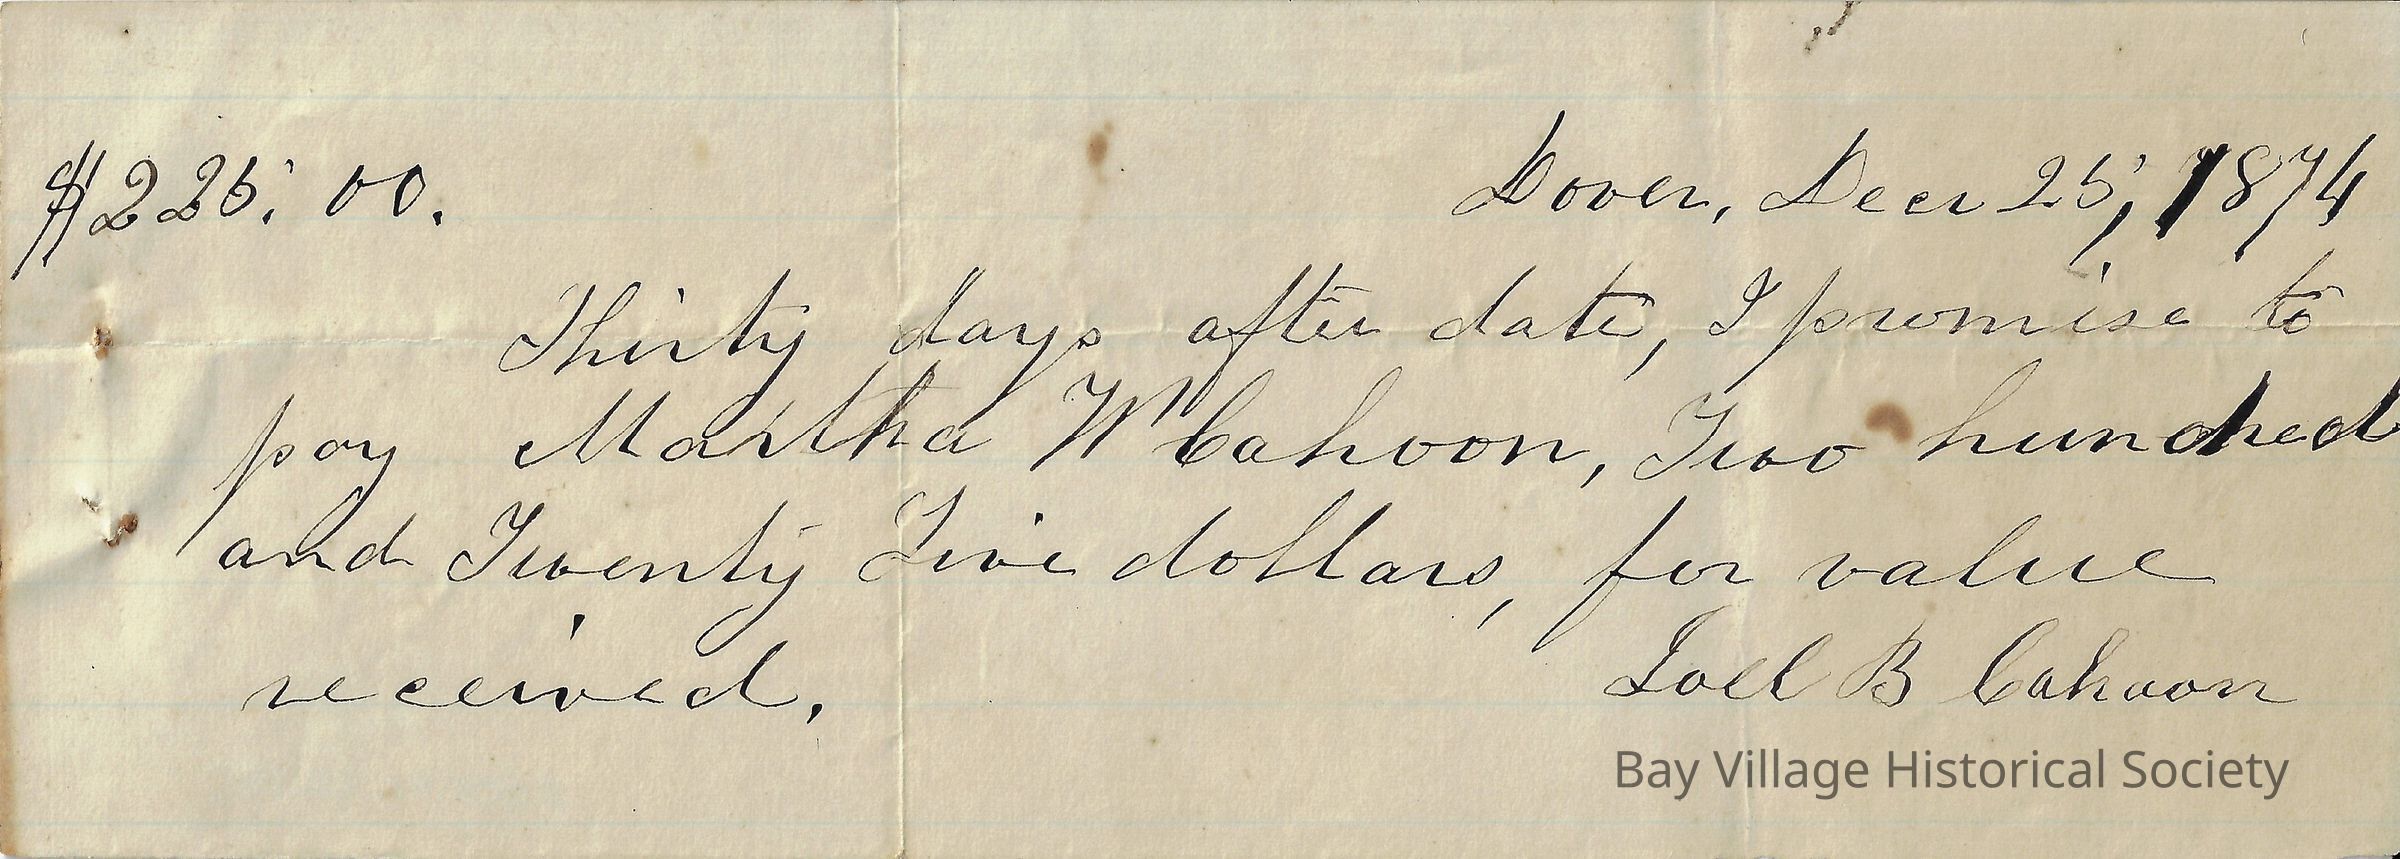 $225.00. Dover, Decr 25, 1874
Thirty days after date, I promise to
pay Martha W Cahoon, Two hundred
and Twenty Five dollars, for value
received.
Joel B Cahoon
Bay Village Historical Society